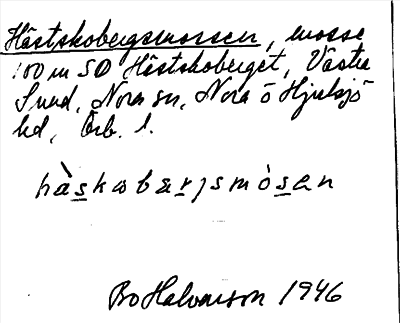 Hästskobergsmossen, mosse
100 m SO Hästskoberget, Västra
Sund, Nora sn, Nora o Hjulsjö
hd, Örb. l.
hàskωbærjsmòsen
Bo Halvarson 1946